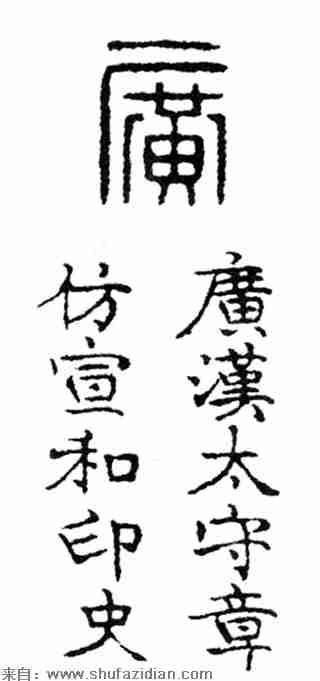 廣
廣漢太守章
仿宣和印史
来自：www.shufazidian.com